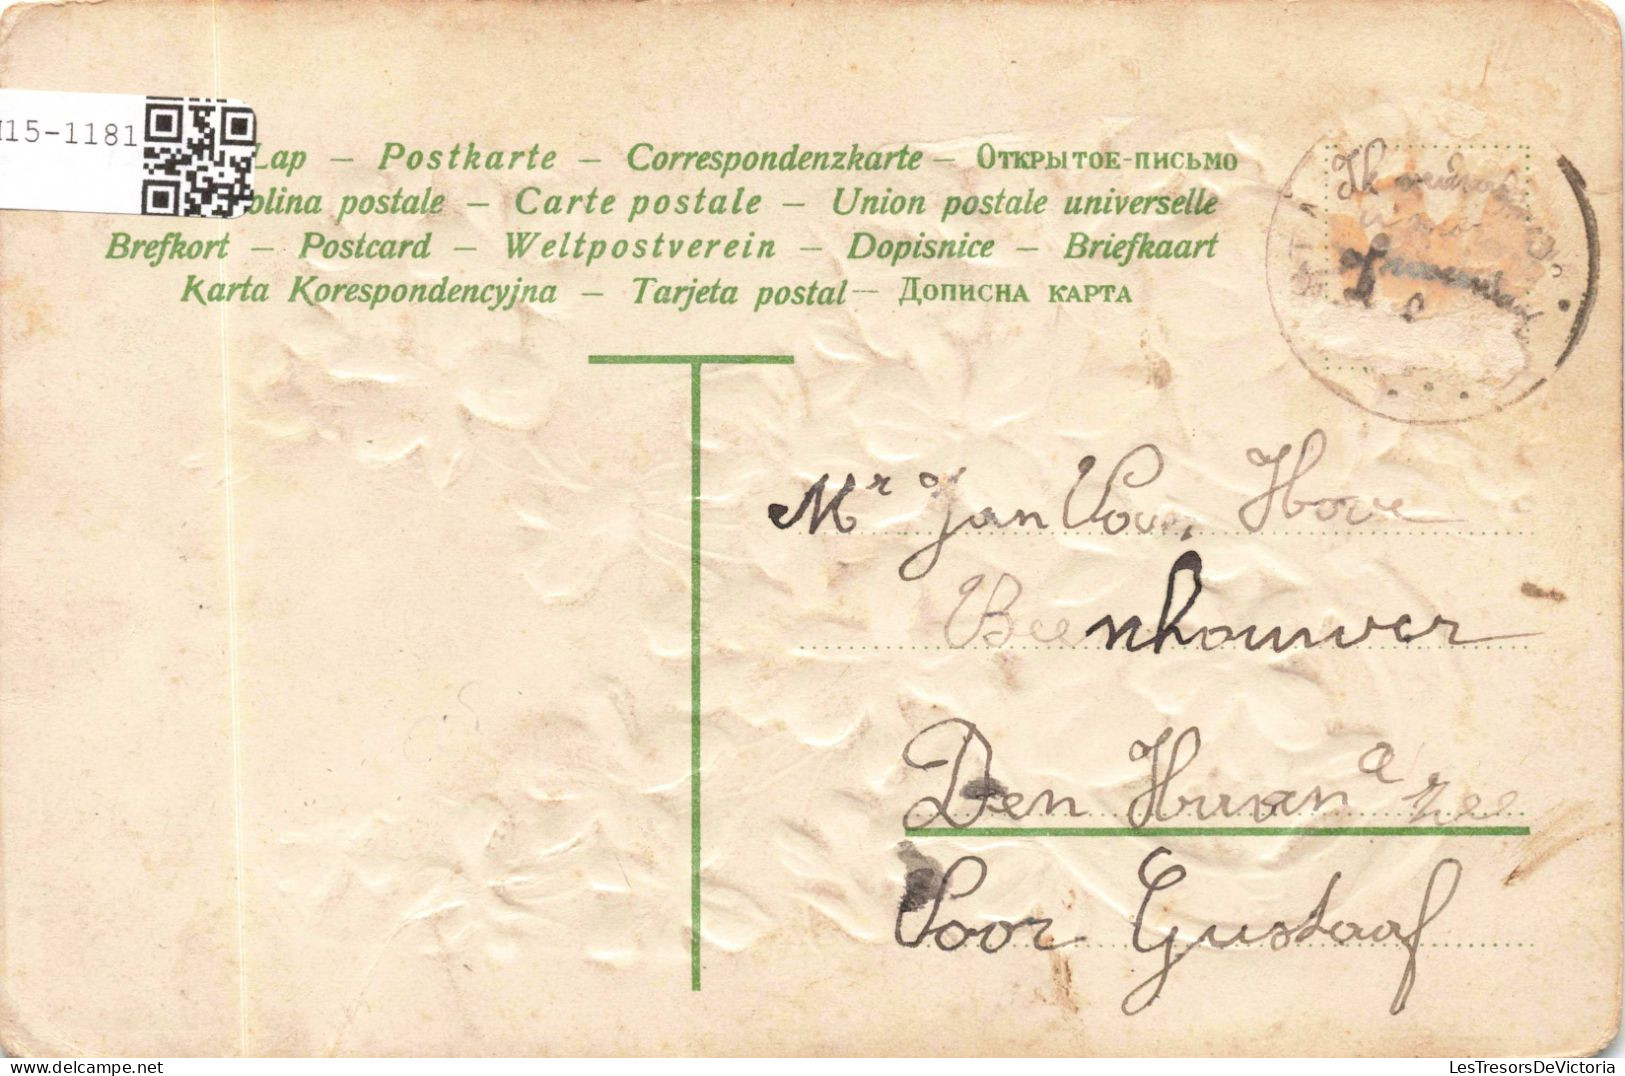 15-1181
Lap – Postkarte – Correspondenzkarte – Открытое-письмо
olina postale – Carte postale – Union postale universelle
Brefkort – Postcard – Weltpostverein – Dopisnice – Briefkaart
Karta Korespondencyjna – Tarjeta postal – Дописна карта
Mr Jan Hove
Beenhouwer
Den
Voor Gustaaf
LesTresorsDeVictoria